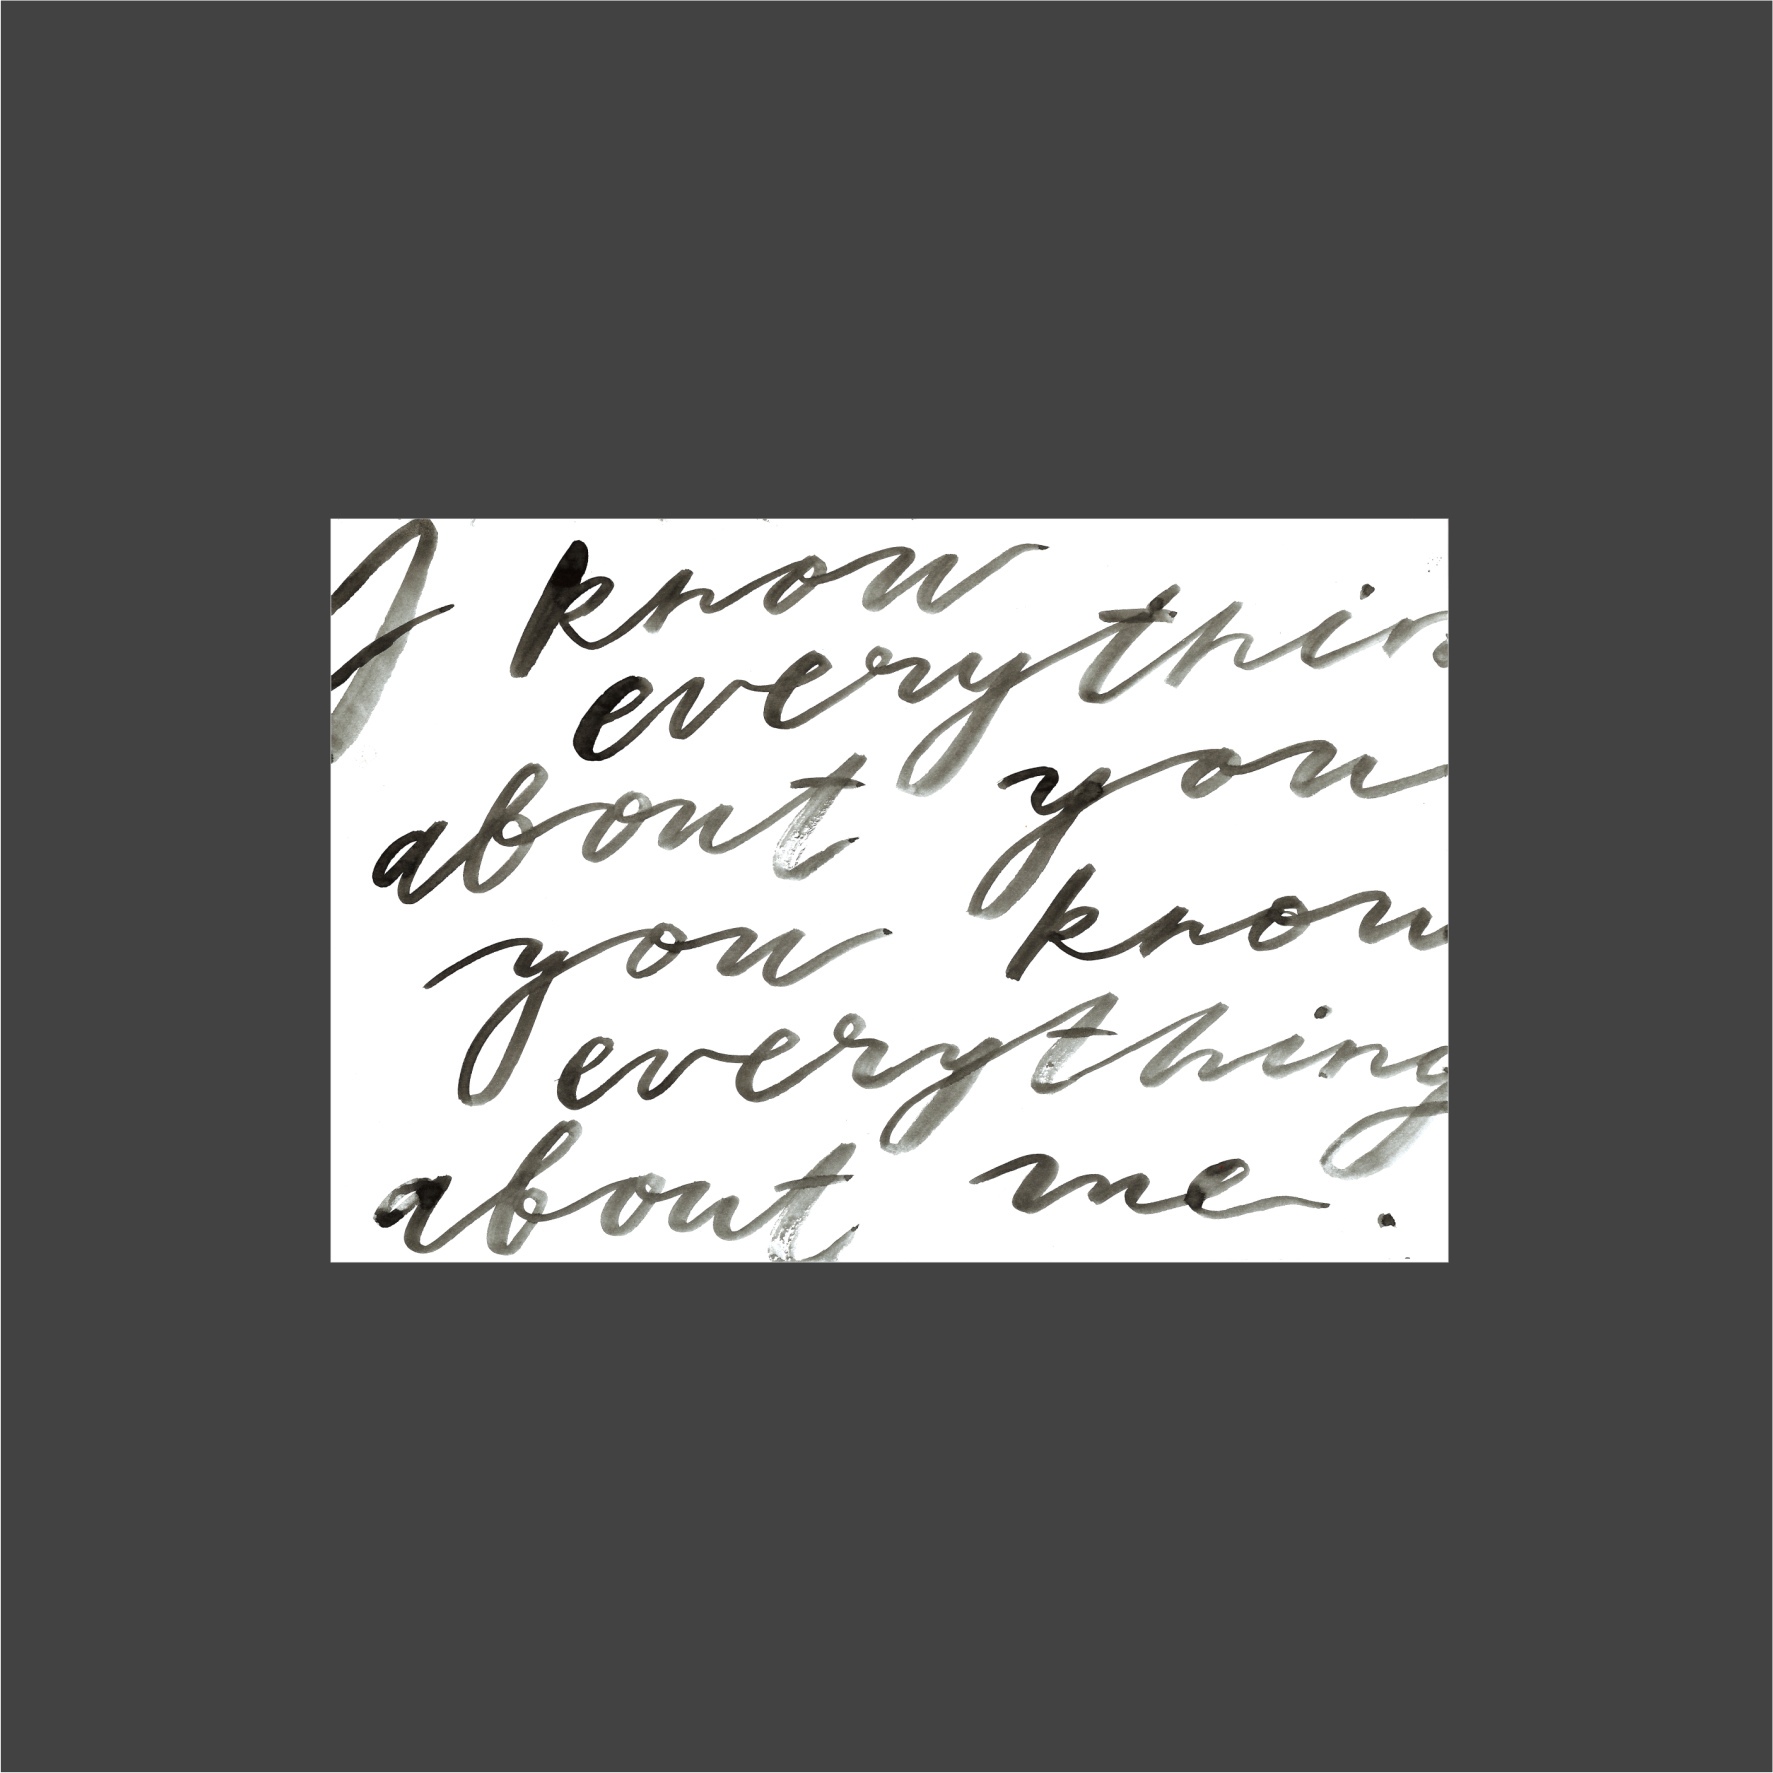 I know
everythin
about you
you know
everything
about me.